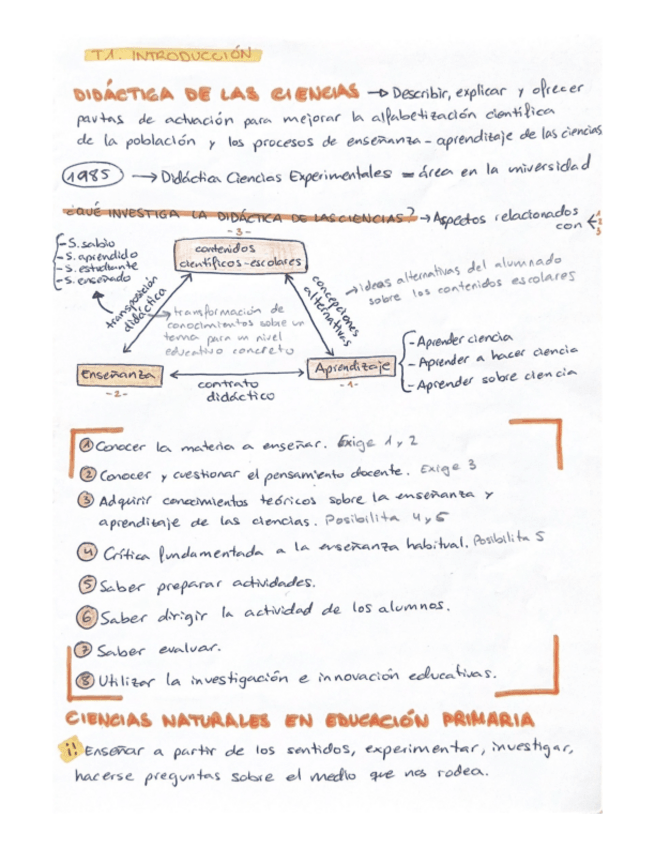 T1. INTRODUCCIÓN
DIDÁCTICA DE LAS CIENCIAS → Describir, explicar y ofrecer
pautas de actuación para mejorar la alfabetización científica
de la población y los procesos de enseñanza-aprendizaje de las ciencias
1985 → Didáctica Ciencias Experimentales = área en la universidad
¿QUÉ INVESTIGA LA DIDÁCTICA DE LAS CIENCIAS? → Aspectos relacionados
con 1 2 3
- S. sabio
- S. aprendido
- S. estudiante
- S. enseñado
-3-
contenidos
científicos-escolares
transposición
didáctica
→ transformación de
conocimientos sobre un
tema para un nivel
educativo concreto
concepciones
alternativas
→ ideas alternativas del alumnado
sobre los contenidos escolares
Enseñanza
-2-
contrato
didáctico
Aprendizaje
-1-
- Aprender ciencia
- Aprender a hacer ciencia
- Aprender sobre ciencia
1 Conocer la materia a enseñar. Exige 1 y 2
2 Conocer y cuestionar el pensamiento docente. Exige 3
3 Adquirir conocimientos teóricos sobre la enseñanza y
aprendizaje de las ciencias. Posibilita 4 y 5
4 Crítica fundamentada a la enseñanza habitual. Posibilita 5
5 Saber preparar actividades.
6 Saber dirigir la actividad de los alumnos.
7 Saber evaluar.
8 Utilizar la investigación e innovación educativas.
CIENCIAS NATURALES EN EDUCACIÓN PRIMARIA
¡! Enseñar a partir de los sentidos, experimentar, investigar,
hacerse preguntas sobre el medio que nos rodea.